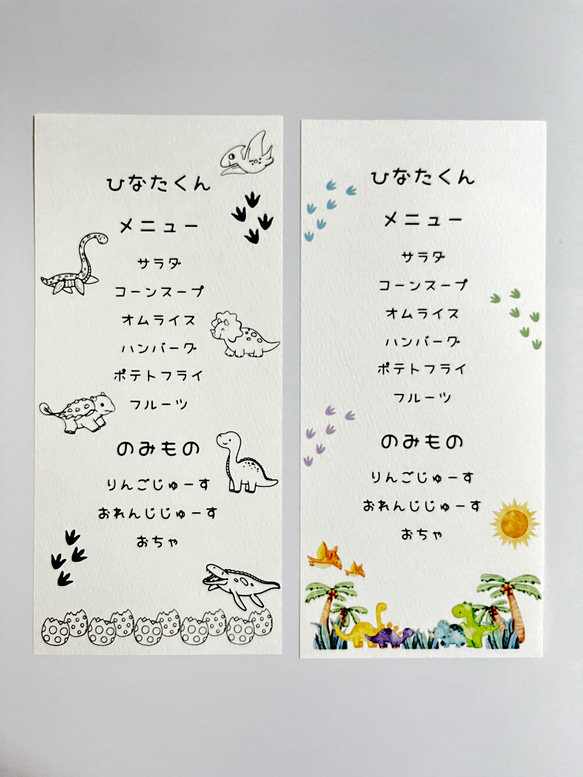 ひなたくん
メニュー
サラダ
コーンスープ
オムライス
ハンバーグ
ポテトフライ
フルーツ
のみもの
りんごじゅーす
おれんじじゅーす
おちゃ
ひなたくん
メニュー
サラダ
コーンスープ
オムライス
ハンバーグ
ポテトフライ
フルーツ
のみもの
りんごじゅーす
おれんじじゅーす
おちゃ